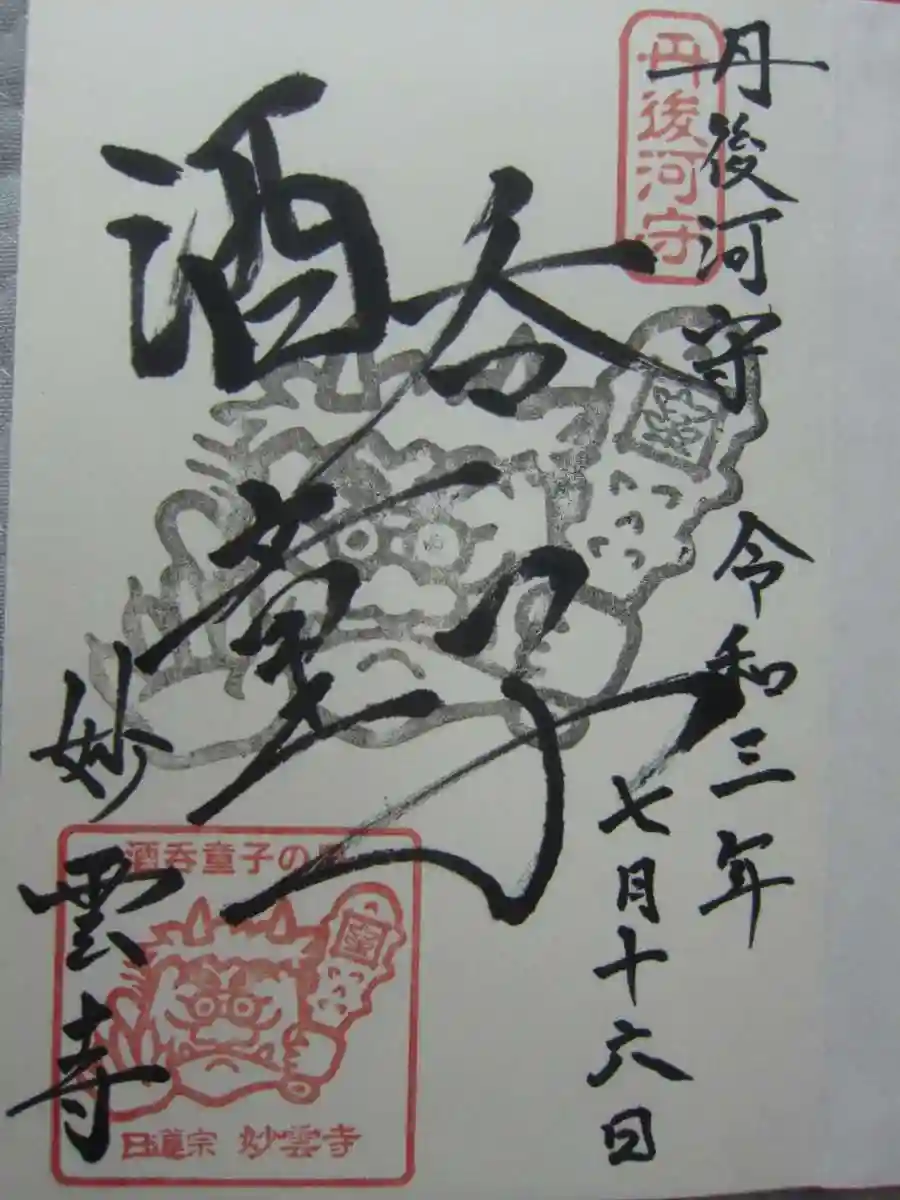 丹後河守
丹後河守
令和三年
七月十六日
酒呑
童子
妙雲寺
酒呑童子の里
日蓮宗 妙雲寺